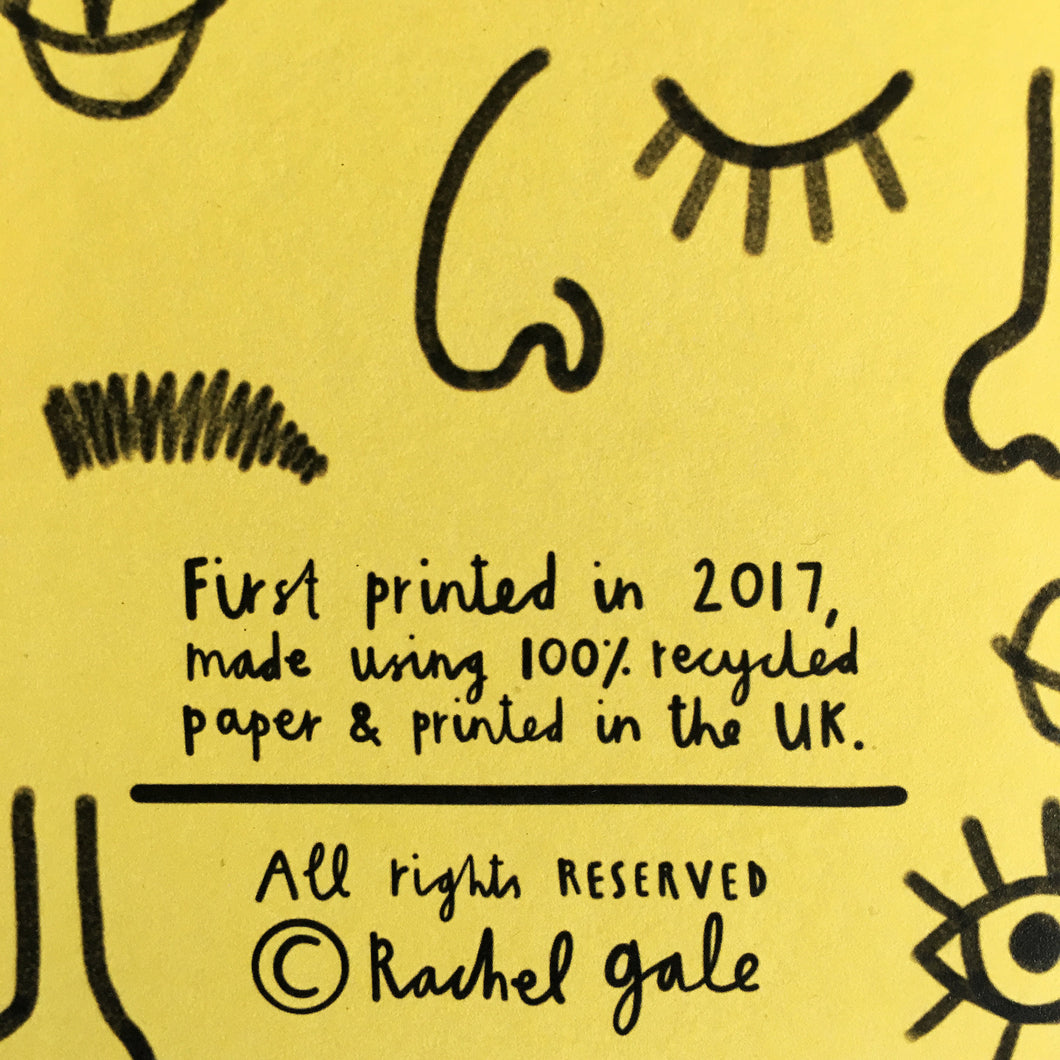 First printed in 2017,
made using 100% recycled
paper & printed in the UK.
All rights RESERVED
© Rachel gale